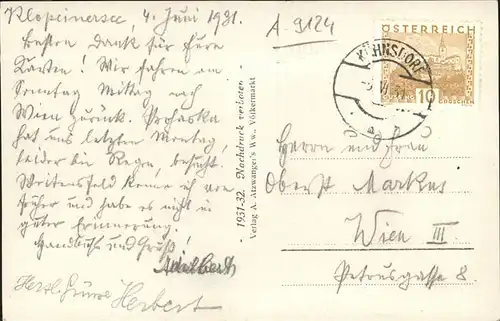 Klopeinersee, 4. Juni 1931.
Besten Dank für Eure
Karten! Wir fahren am
Sonntag Mittag nach
Wien zurück. Prohaska
hat uns letzten Montag,
leider bei Regen, besucht.
Weitensfeld kenne ich von
früher und habe es
guter Erinnerung.
Handkuss und Gruß!
Herzl. Grüsse Herbert
A 9124
1931-32. Nachdruck verboten
Verlag A. Atzwanger's Ww., Völkermarkt
ÖSTERREICH
10
GROSCHEN
KÜHNSDORF
Herrn und Frau
Oberst Markus
Wien III.
Petrusgasse 8.